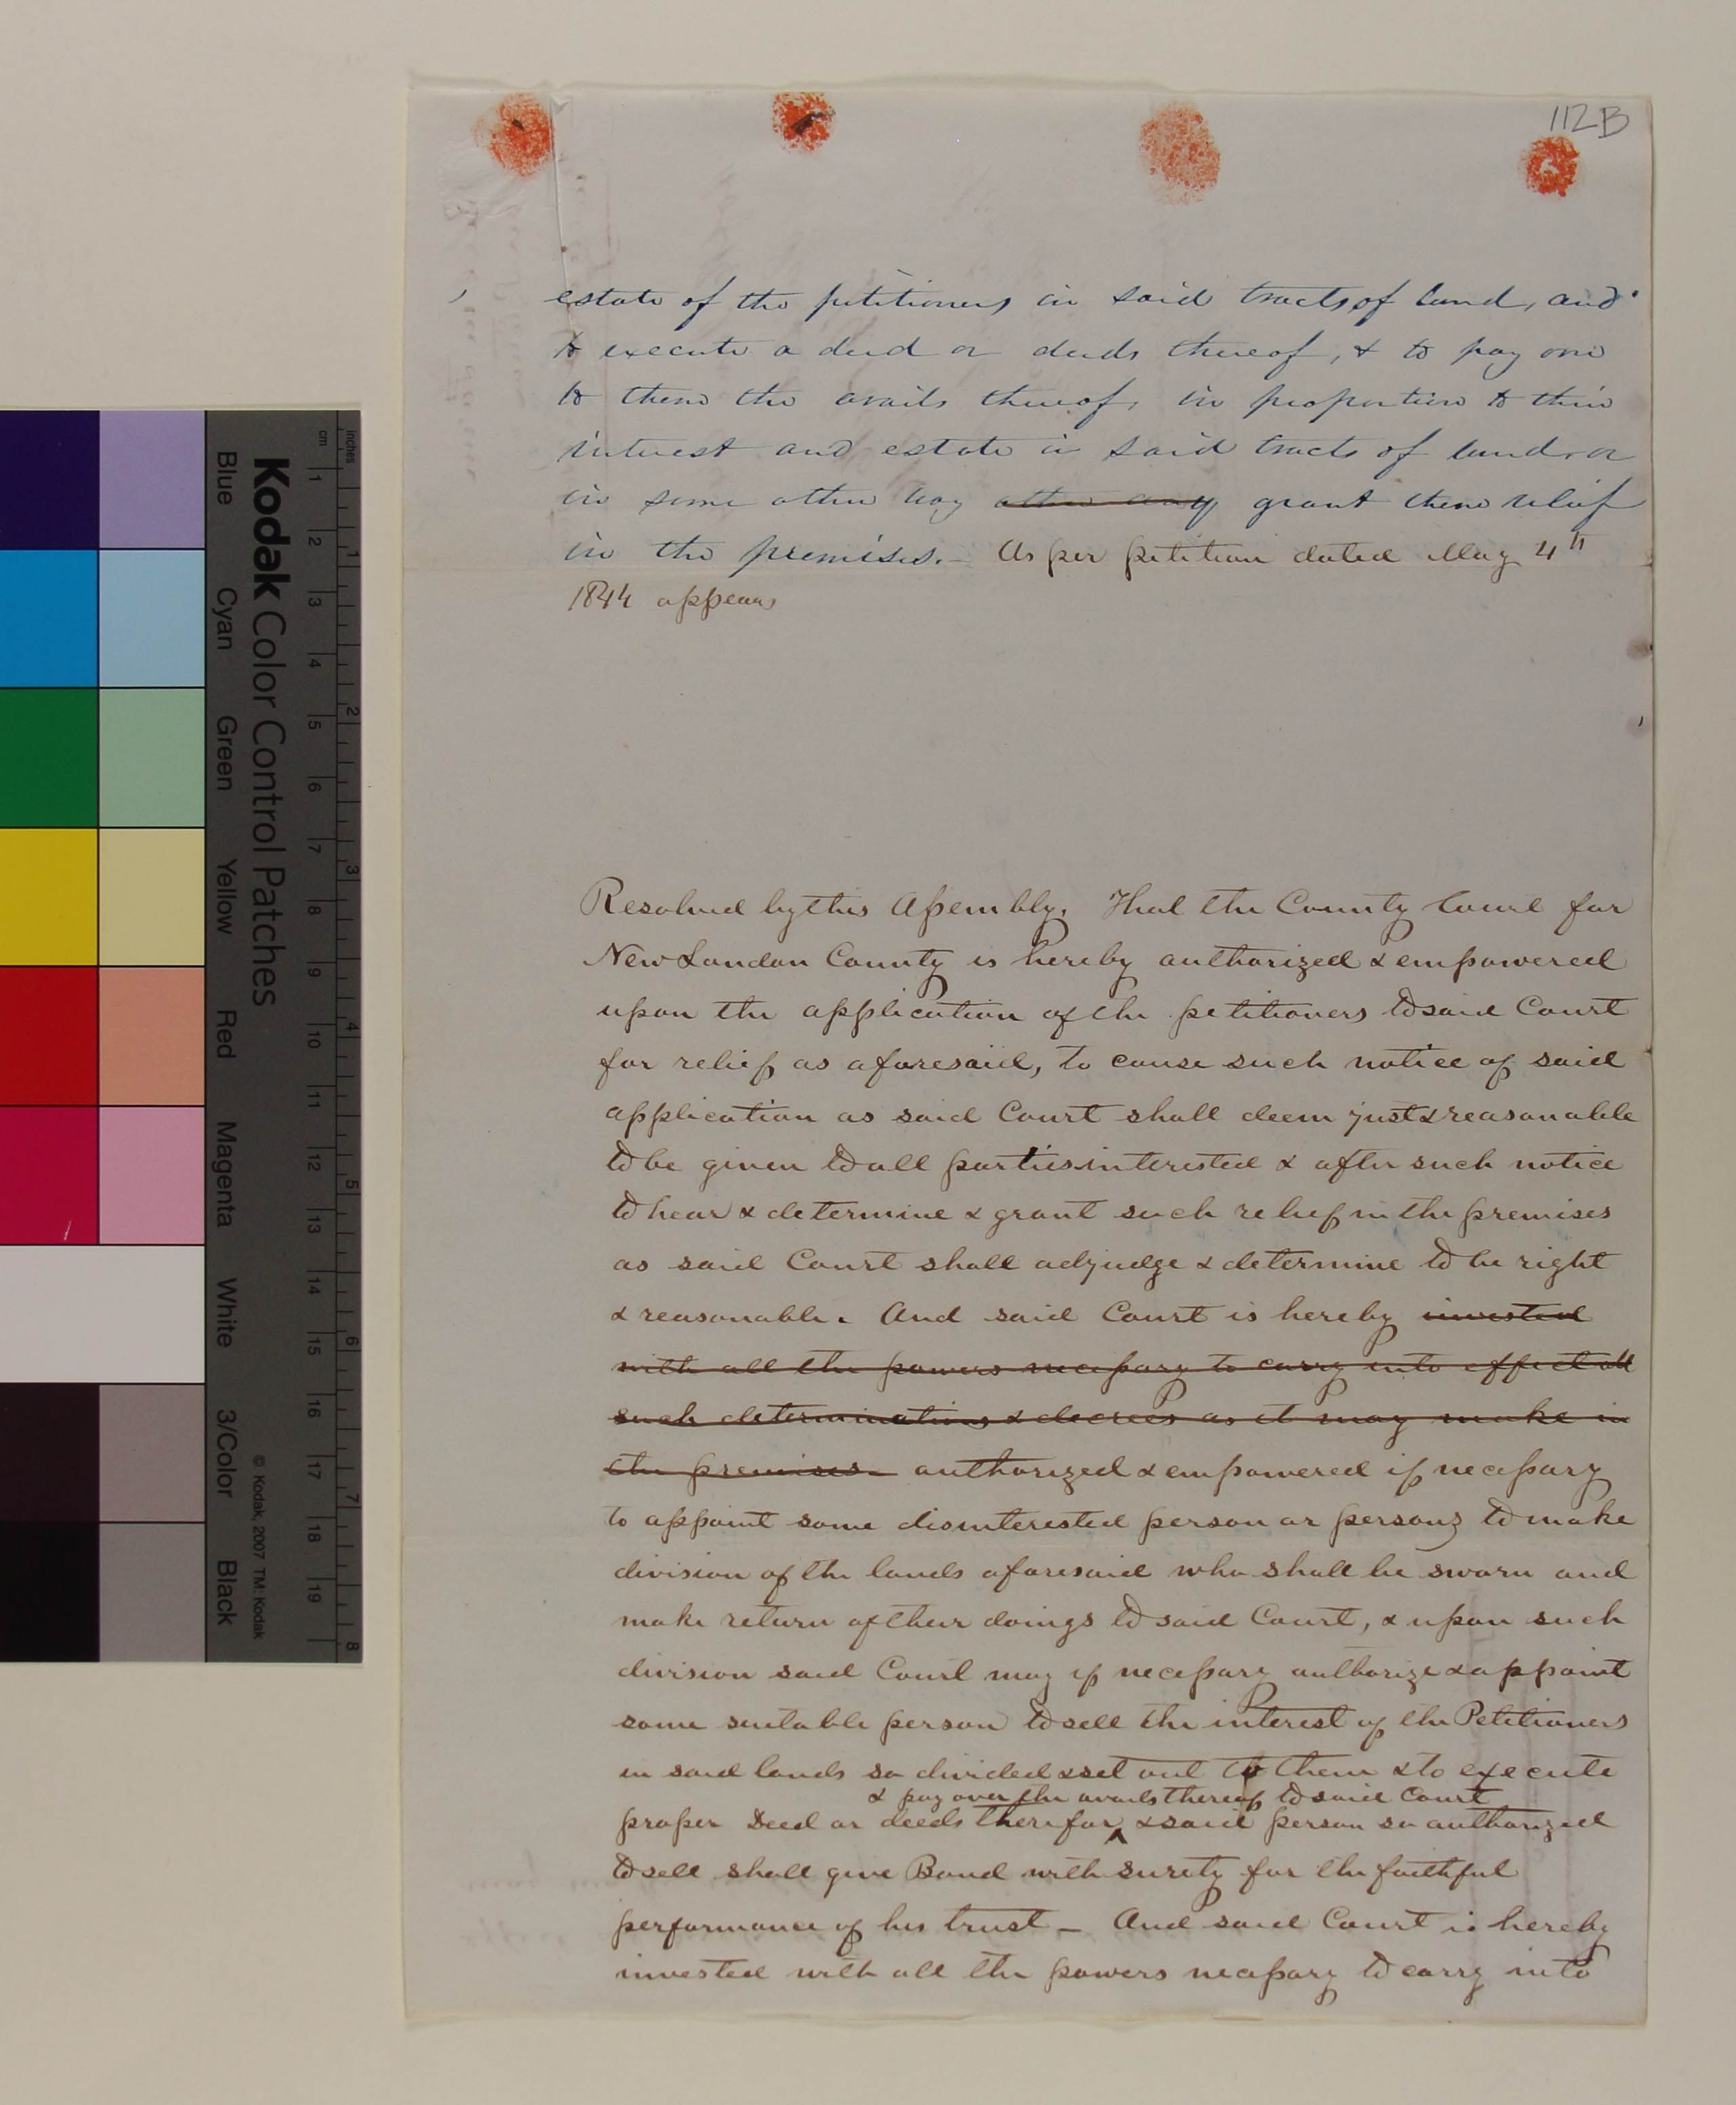 112B
estate of the petitioners in said tracts of land, and
to execute a deed or deeds thereof, & to pay over
to them the avails thereof, in proportion to their
interest and estate in said tracts of land or
in some other way other way grant them relief
in the premises. - As per petition dated May 4th
1844 appears
Resolved by this Assembly, That the County Court for
New London County is hereby authorized & empowered
upon the application of the petitioners to said Court
for relief as aforesaid, to cause such notice of said
application as said Court shall deem just & reasonable
to be given to all parties interested & after such notice
to hear & determine & grant such relief in the premises
as said Court shall adjudge & determine to be right
& reasonable. And said Court is hereby invested
with all the powers necessary to carry into effect all
such determinations & decrees as it may make in
the premises. authorized & empowered if necessary
to appoint some disinterested person or persons to make
division of the lands aforesaid who shall be sworn and
make return of their doings to said Court, & upon such
division said Court may if necessary authorize & appoint
some suitable person to sell the interest of the Petitioners
in said lands so divided & set out to them & to execute
& pay over the avails thereof to said Court
proper Deed or deeds therefor ^ & said person so authorized
to sell shall give Bond with surety for the faithful
performance of his trust - And said Court is hereby
invested with all the powers necessary to carry into
Kodak Color Control Patches
© Kodak, 2007 TM: Kodak
Blue Cyan Green Yellow Red Magenta White 3/Color Black
inches 1 2 3 4 5 6 7 8
cm 1 2 3 4 5 6 7 8 9 10 11 12 13 14 15 16 17 18 19